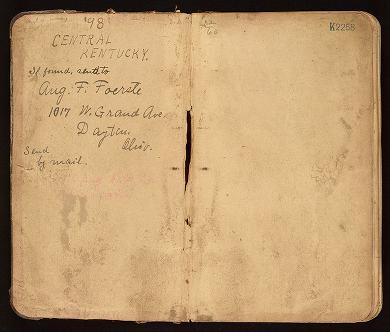 '98
CENTRAL
KENTUCKY.
If found, send to
Aug. F. Foerste
1017 W. Grand Ave.
Dayton,
Ohio.
Send
by mail.
K2258